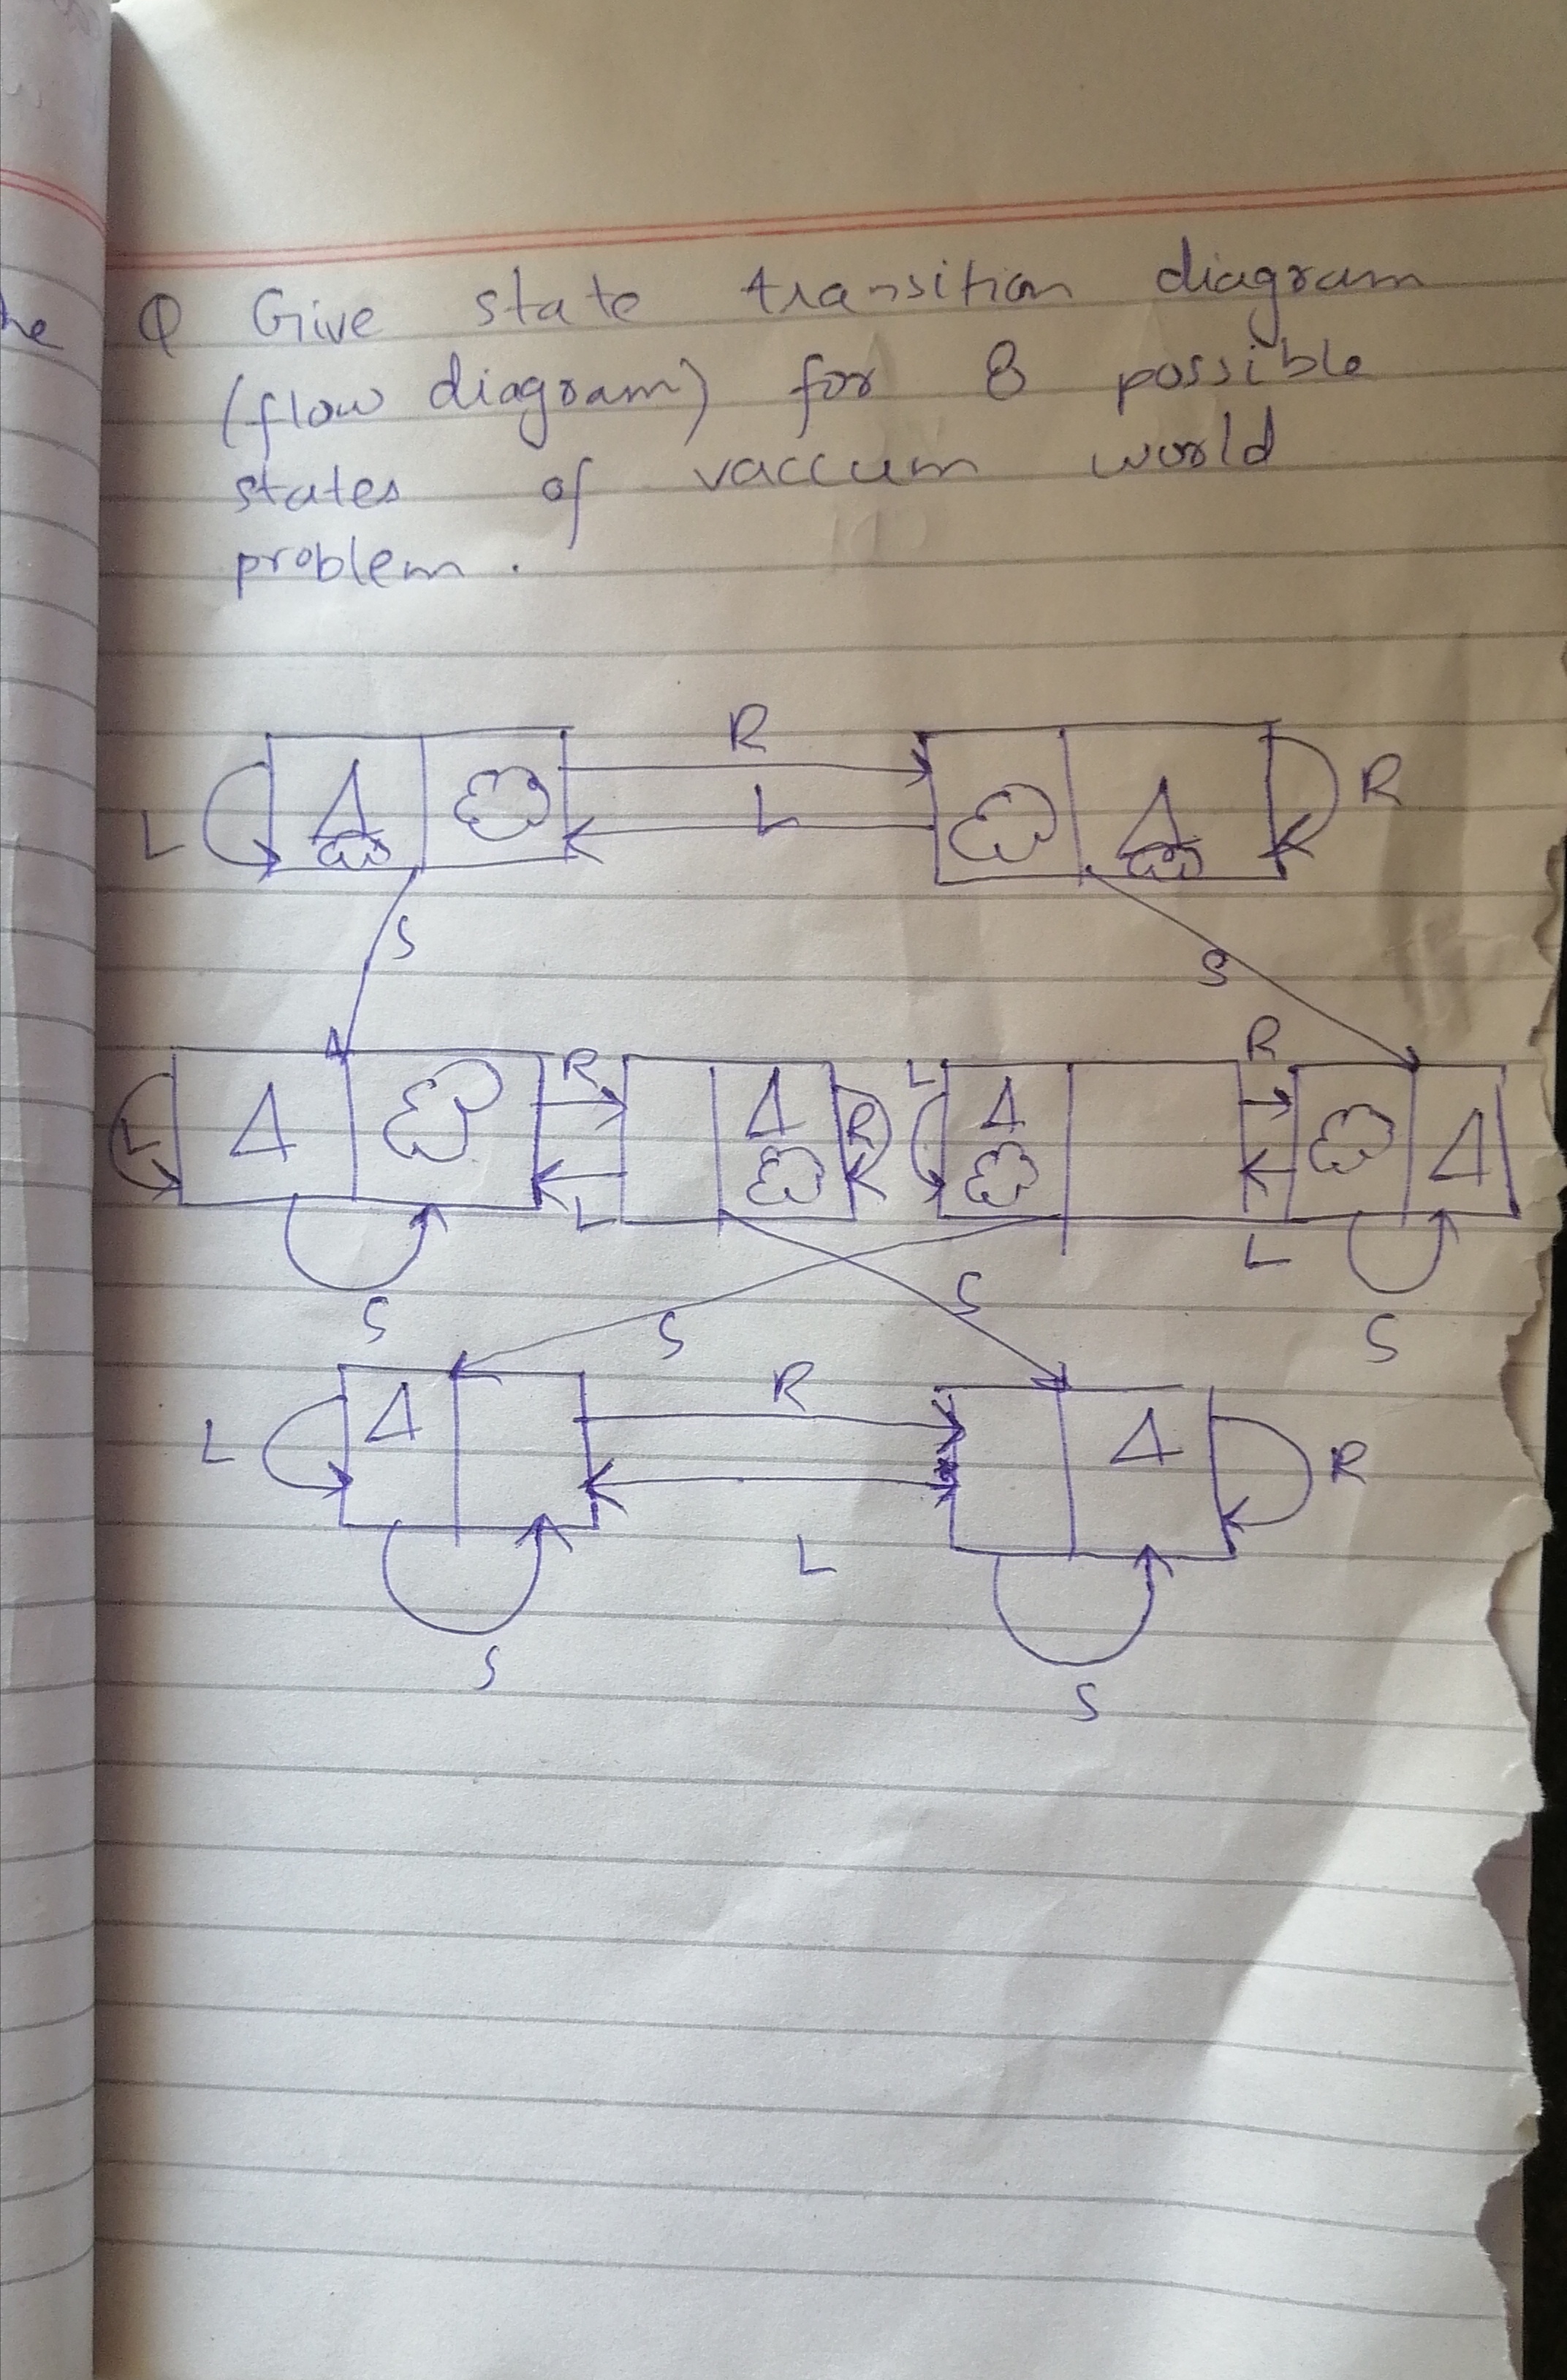 he
Q Give state transition diagram
(flow diagram) for 8 possible
states of vaccum world
problem.
R
L R
L
S
S
R
R
L R L
L L
S
S
S S
R
L R
L
S
S